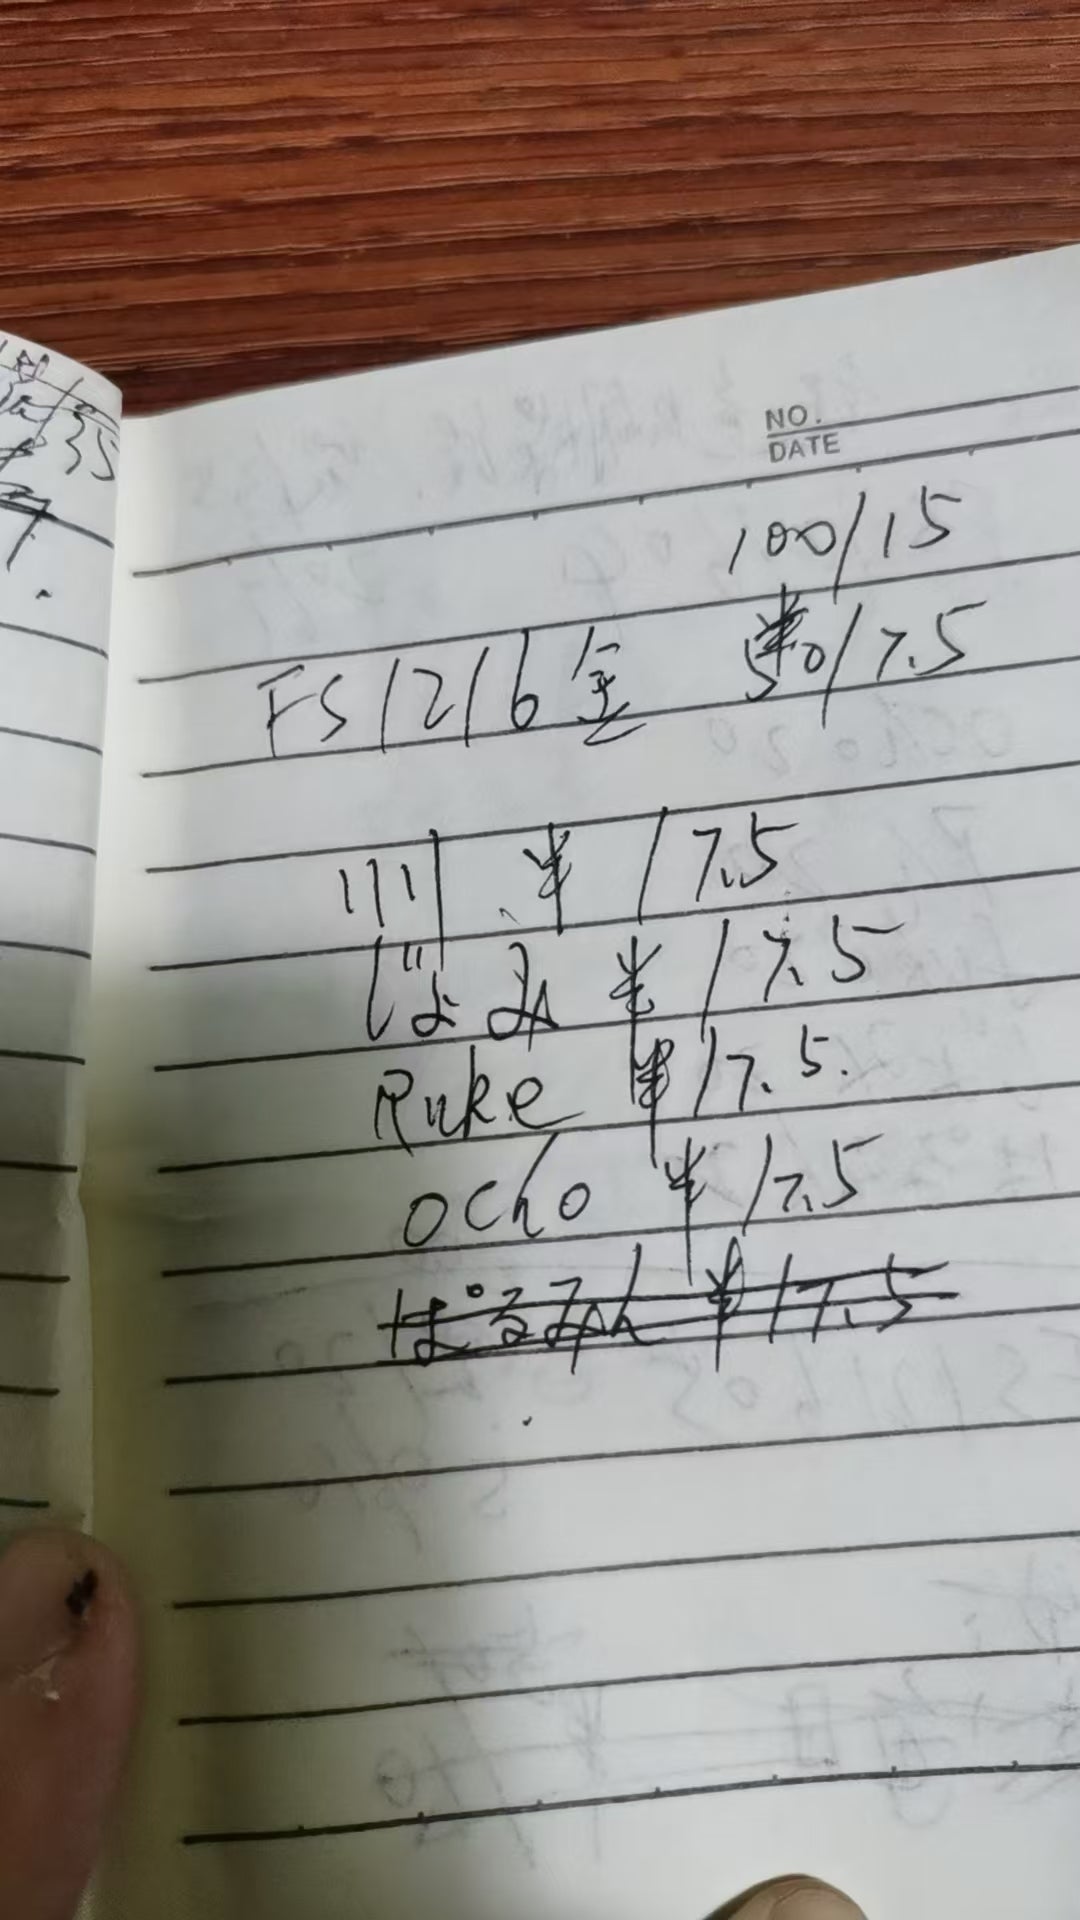 35
NO.
DATE
100/15
FS/216全 50/7.5
川 半 /7.5
半 /7.5
Ruke 半 /7.5.
ocho 半 /7.5
ぽるみん 半 /7.5